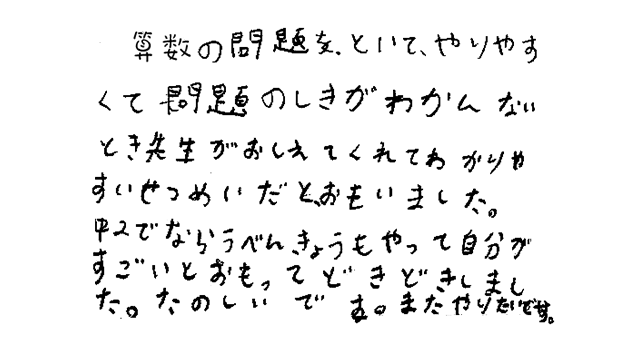 算数の問題を、といて、やりやす
くて問題のしきがわかんない
とき先生がおしえてくれてわかりや
すいせつめいだと、おもいました。
中2でならうべんきょうもやって自分が
すごいとおもってどきどきしまし
た。たのしいです。またやりたいです。